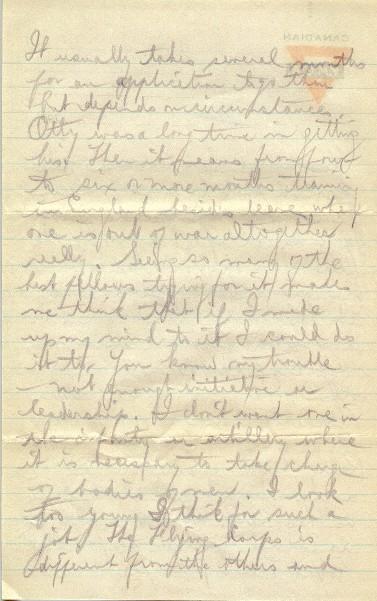 CANADIAN
It usually takes several months
for an application to go thru
but depends on circumstances.
Otty was a long time in getting
his. Then it means from four
to six or more months training
in England besides leave when
one is out of war altogether
really. Seeing so many of the
best fellows trying for it makes
me think that if I made
up my mind to it I could do
it too. You know my trouble
— not enough initiative or
leadership. I don't want one in
the infantry or artillery where
it is necessary to take charge
of bodies of men. I look
too young I think for such a
job. The Flying Corps is
different from the others and